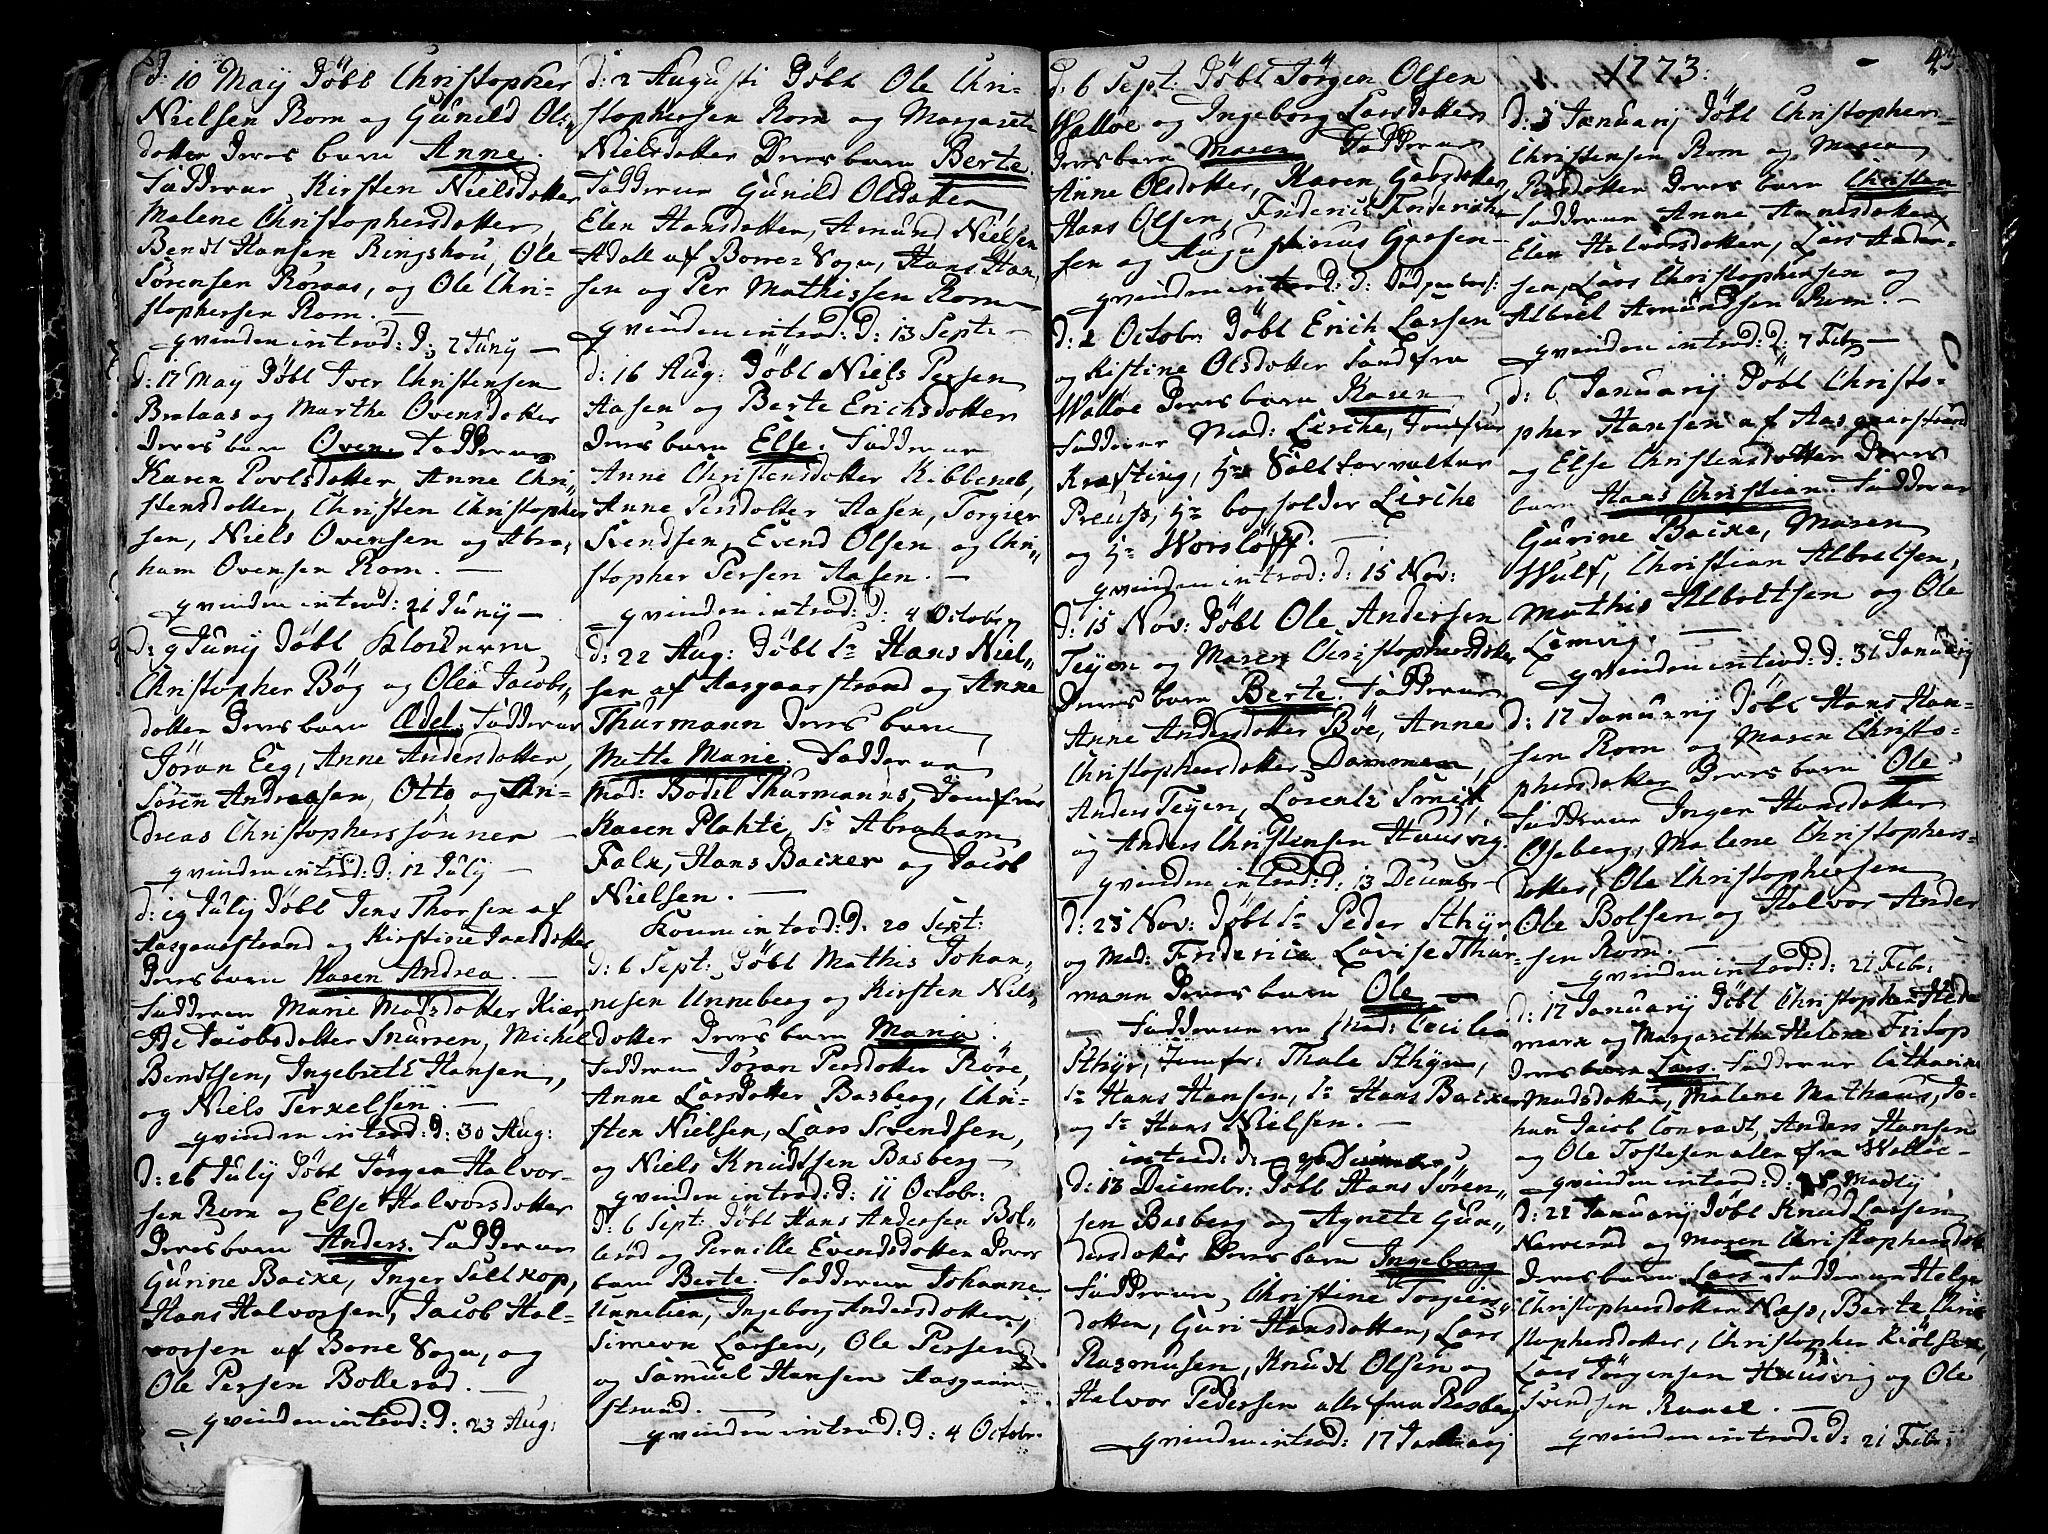 d: 10 Maij Döbt Christopher
Nielsen Rom og Gunild Ols-
dotter Deres barn Anne.
Fadderne Kirsten Nielsdotter
Malene Christophersdotter,
Bendt Hansen Ringshou, Ole
Sörensen Röraas, og Ole Chri-
stophersen Rom. —
qvinden introd: D: 7 Junij —
d: 17 Maij Döbt Iver Christensen
Brataas og Marthe Ovensdotter
Deres barn Oven. Fadderne
Karen Povlsdotter, Anne Chri-
stensdotter, Christen Christopher
sen, Niels Ovensen og Abra-
ham Ovensen Rom. —
qvinden introd: 21 Junij —
d: 9 Junij Döbt Klockeren
Christopher Bög og Olea Jacobs-
dotter Deres barn Ædel. Fadderne
Jöran Eeg, Anne Andersdotter,
Sören Andreasen, Otto og An-
dreas Christopherssönner —
qvinden introd: D: 12 Julij —
d: 19 Julij Döbt Jens Thorsen af
Aasgaardstrand og Kirstine Jacobsdotter
Deres barn Karen Andrea. —
Fadderne Marie Madsdotter Kiær
Jacobsdotter Snurren, Michel
Bendtsen, Ingebret Hansen,
og Niels Terkelsen. —
qvinden introd: D: 30 Aug:
d: 26 Julij Döbt Jörgen Halvor-
sen Rom og Else Halvorsdotter
Deres barn Anders. Fadderne
Gurine Backe, Inger Saltkop,
Hans Halvorsen, Jacob Hal-
vorsen af Borre Sogn, og
Ole Persen Bollerød. —
qvinden introd: D: 23 Aug:
d: 2 Augusti Döbt Ole Chri-
stophersen Rom og Margarete
Nielsdotter Deres barn Berte.
Fadderne Gunild Olsdotter
Elen Hansdotter, Amund Nielsen
Adall af Borre Sogn, Hans Han-
sen og Per Mathissen Rom —
qvinden introd: D: 13 Sept: —
d: 16 Aug: Döbt Niels Persen
Aasen og Berte Erichsdotter
Deres barn Else. Fadderne
Anne Christensdotter
Anne Persdotter Aasen, Torgier
Svendsen, Evend Olsen og Chri-
stopher Persen Aasen. —
qvinden introd: D: 4 Octobr
d: 22 Aug: Döbt Sr Hans Niel-
sen af Aasgaarstrand og Anne
Thurmann Deres barn
Mette Marie. Fadderne
Mad: Bodil Thurmanns, Jomfrue
Karen Plahte, Sr Abraham
Falk, Hans Backer og Jacob
Nielsen. —
Konen introd: D: 20 Sept:
d: 6 Sept: Döbt Mathis Johan-
nesen Unneberg og Kirsten Niels
dotter Deres barn Maria.
Fadderne Jöran Persdotter Röre,
Anne Larsdotter Basberg, Chri-
sten Nielsen, Lars Svendsen,
og Niels Knudtsen Basberg —
qvinden introd: D: 11 Octobr:
d: 6 Sept: Döbt Hans Andersen Bol-
lerød og Pernille Evendsdotter Deres
barn Berte. Fadderne Johanne
Ingeborg Andersdotter,
Simen Larsen, Ole Persen
og Samuel Hansen Aasgaar-
strand. —
qvinden introd: D: 4 Octobr.
d: 6 Sept: Döbt Jörgen Olsen
Walløe og Ingeborg Larsdotter
Deres barn Maren. Fadderne
Anne Olsdotter, Karen Garsdotter,
Hans Olsen, Friderich Friderich-
sen og Augustinus Garsen —
qvinden introd: D:
d: 2 Octobr: Döbt Erich Larsen
og Kistine Olsdotter Sand fra
Walløe Deres barn Karen
Fadderne Mad: Lerche, Jomfrue
Krefting, Hr Saltforvalter
Preuss, Hr bogholder Lerche
og Hr Worslöff. —
qvinden introd: d: 15 Nov:
d: 15 Nov: Döbt Ole Andersen
Teyen og Maren Christophersdotter
Deres barn Berte. Fadderne
Anne Andersdotter Böe, Anne
Christophersdotter Dammen,
Anders Teyen, Lorentz Smed,
og Anders Christensen Huusvig.
qvinden introd: D: 13 Decembr —
d: 25 Nov: Döbt Sr Peder Sthyr
og Mad: Friderica Lovise Thur-
mann Deres barn Ole —
Fadderne ere Mad: Cecilia
Sthyr, Jomfr: Thale Sthyr,
Sr Hans Hansen, Sr Hans Backer
og Sr Hans Nielsen. —
introd: D:
d: 13 Decembr: Döbt Hans Sören-
sen Basberg og Agnete Gun-
dersdotter Deres barn Ingeborg
Fadderne, Christine Torgiers-
dotter, Guri Hansdotter, Lars
Rasmusen, Knudt Olsen og
Halvor Pedersen alle fra Basberg
qvinden introd: 17 Januarij
1773. — 45
d: 3 Januarij Döbt Christopher
Christensen Rom og Maren
Persdotter Deres barn Christen
Fadderne Anne Amundsdotter,
Elen Halvorsdotter, Lars Ander-
sen, Lars Christophersen og
Albret Amundsen Rom. —
qvinden introd: D: 7 Febr —
d: 6 Januarij Döbt Christo-
pher Hansen af Aasgaarstrand
og Else Christensdotter Deres
barn Hans Christian. Fadderne
Gurine Backe, Maren
Wulf, Christian Albretsen,
Mathis Albretsen og Ole
Lemvig. —
qvinden introd: D: 31 Januarij
d: 17 Januarij Döbt Hans Han-
sen Rom og Maren Christo-
phersdotter Deres barn Ole
Fadderne Inger Hansdotter
Oseberg, Malene Christophers-
dotter, Ole Christophersen
Ole Bolsen og Halvor Ander
sen Rom. —
qvinden introd: d: 21 Febr:
d: 17 Januarij Döbt Christopher Hede
mark og Margaretha Helena Fritsop
Deres barn Lars. Fadderne Catharine
Madsdotter, Malene Mathæus, Jo-
han Jacob Conradt, Anders Hansen
og Ole Tostesen alle fra Walløe —
qvinden introd: D:
d: 22 Januarij Döbt Knud Larsen
Narverød og Maren Christophersdotter
Deres barn Lars. Fadderne Helge
Christophersdotter Næss, Berte Chri-
stophersdotter, Christopher Kiölsen,
Lars Jörgensen Huusvig og Ole
Svendsen Ravel. —
qvinden introd: D: 21 Febr: